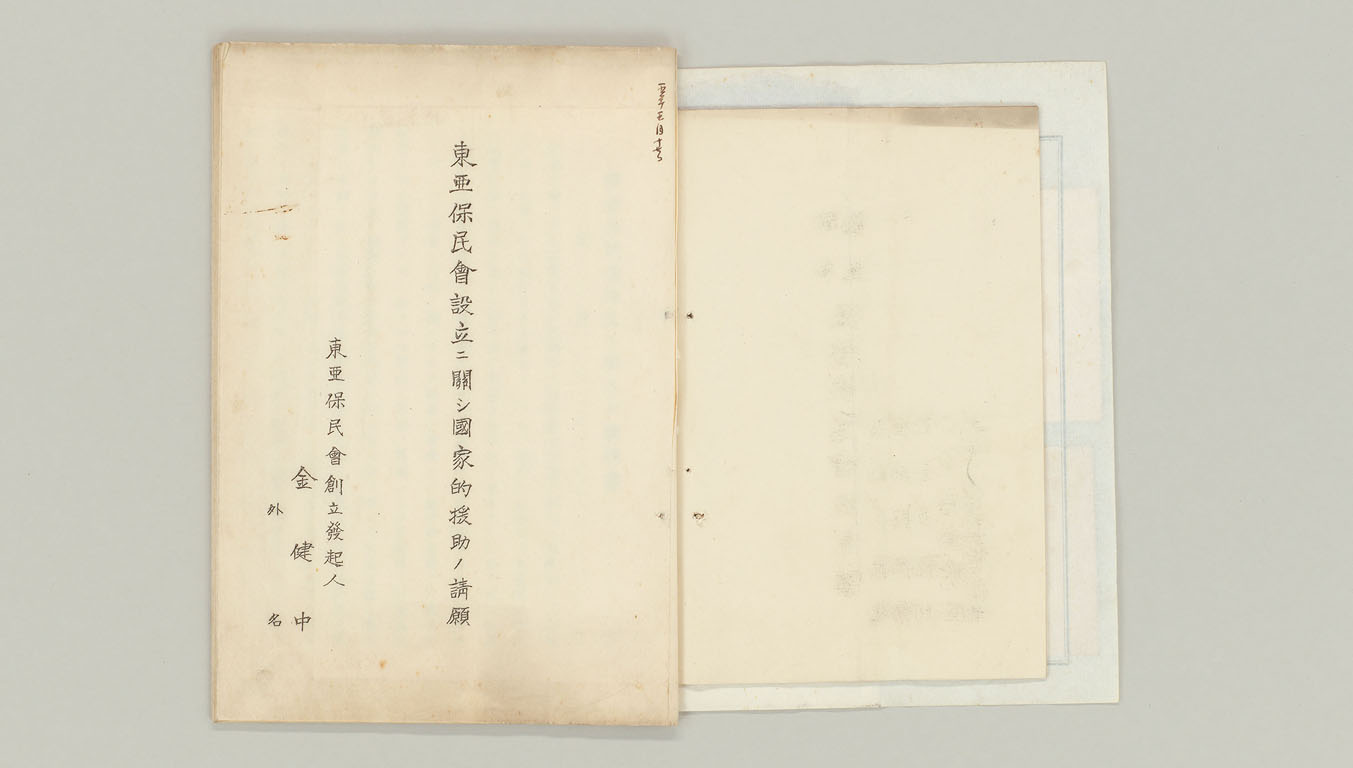 東亜保民會設立ニ關シ國家的援助ノ請願
東亜保民會創立發起人
金健中
外 名